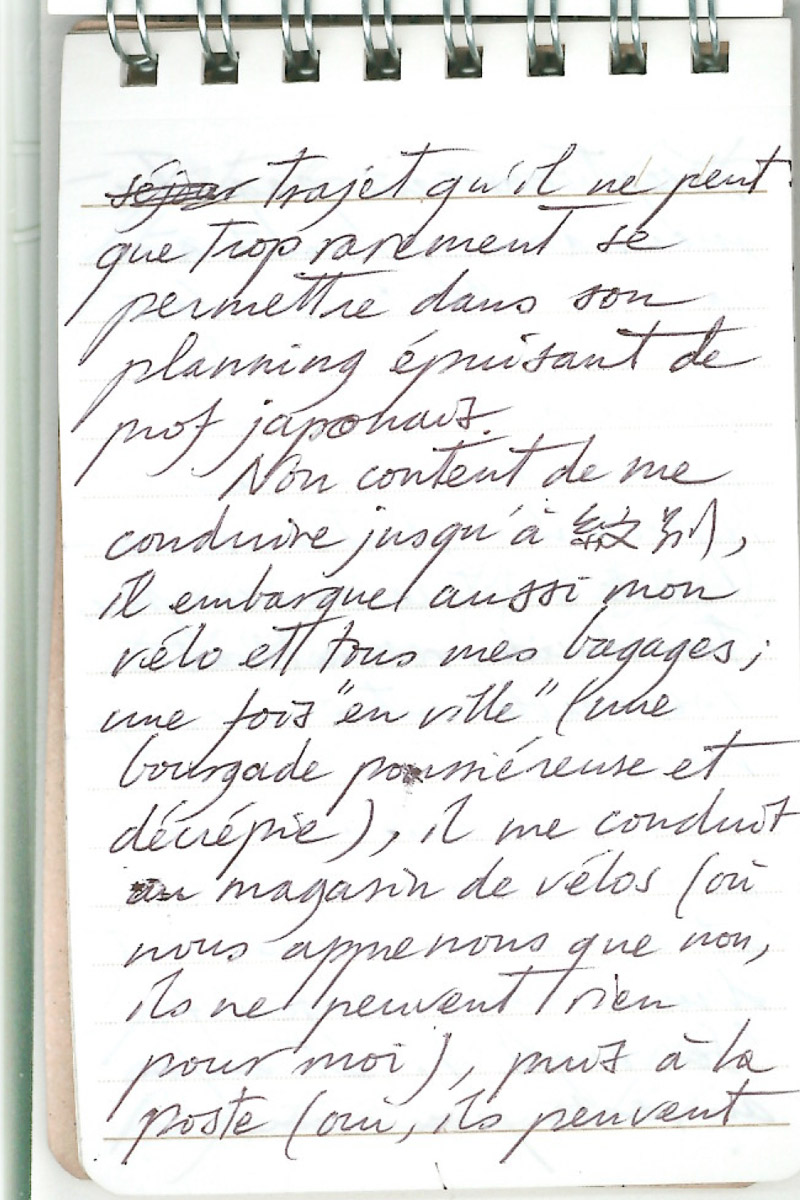 séjour trajet qu'il ne peut
que trop rarement se
permettre dans son
planning épuisant de
prof japonais.
Non content de me
conduire jusqu'à 紋別,
il embarque aussi mon
vélo et tous mes bagages ;
une fois "en ville" (une
bourgade poussiéreuse et
décrépie), il me conduit
au magasin de vélos (où
nous apprenons que non,
ils ne peuvent rien
pour moi), puis à la
poste (oui, ils peuvent